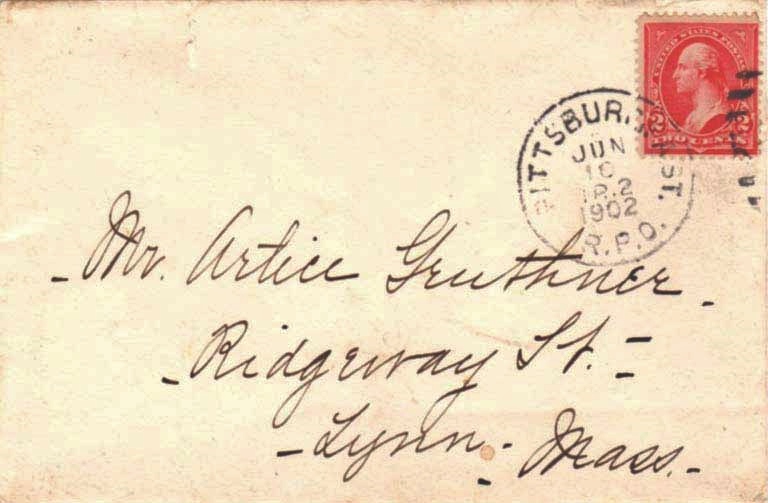 UNITED STATES POSTAGE
TWO CENTS
PITTSBURG ST.
JUN
TR.2
1902
R.P.O.
- Mr. Artice Gruthner -
- Ridgeway St. -
- Lynn - Mass. -